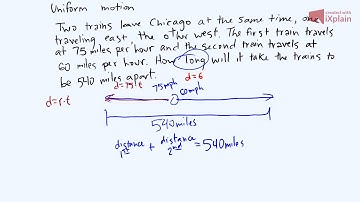 created with
iXplain
Uniform motion
Two trains leave Chicago at the same time, one
traveling east, the other west. The first train travels
at 75 miles per hour and the second train travels at
60 miles per hour. How long will it take the trains to
be 540 miles apart.
d=75t d=6
d=r.t 75mph 60mph
540 miles
distance 1st + distance 2nd = 540miles